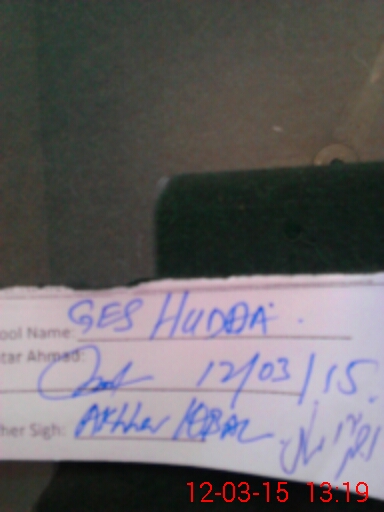 ool Name: GES HUDAA.
tar Ahmad: 12/03/15.
her Sigh: Akhter IQBAL
12-03-15 13:19